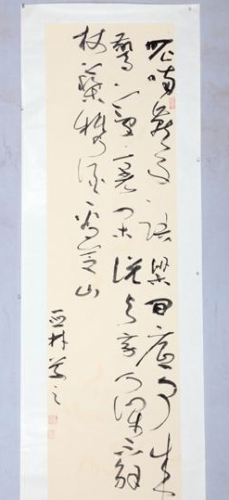 呢喃燕子語梁間底事來
驚夢裏閒說與旁人渾不解
杖藜攜酒看芝山
亞林